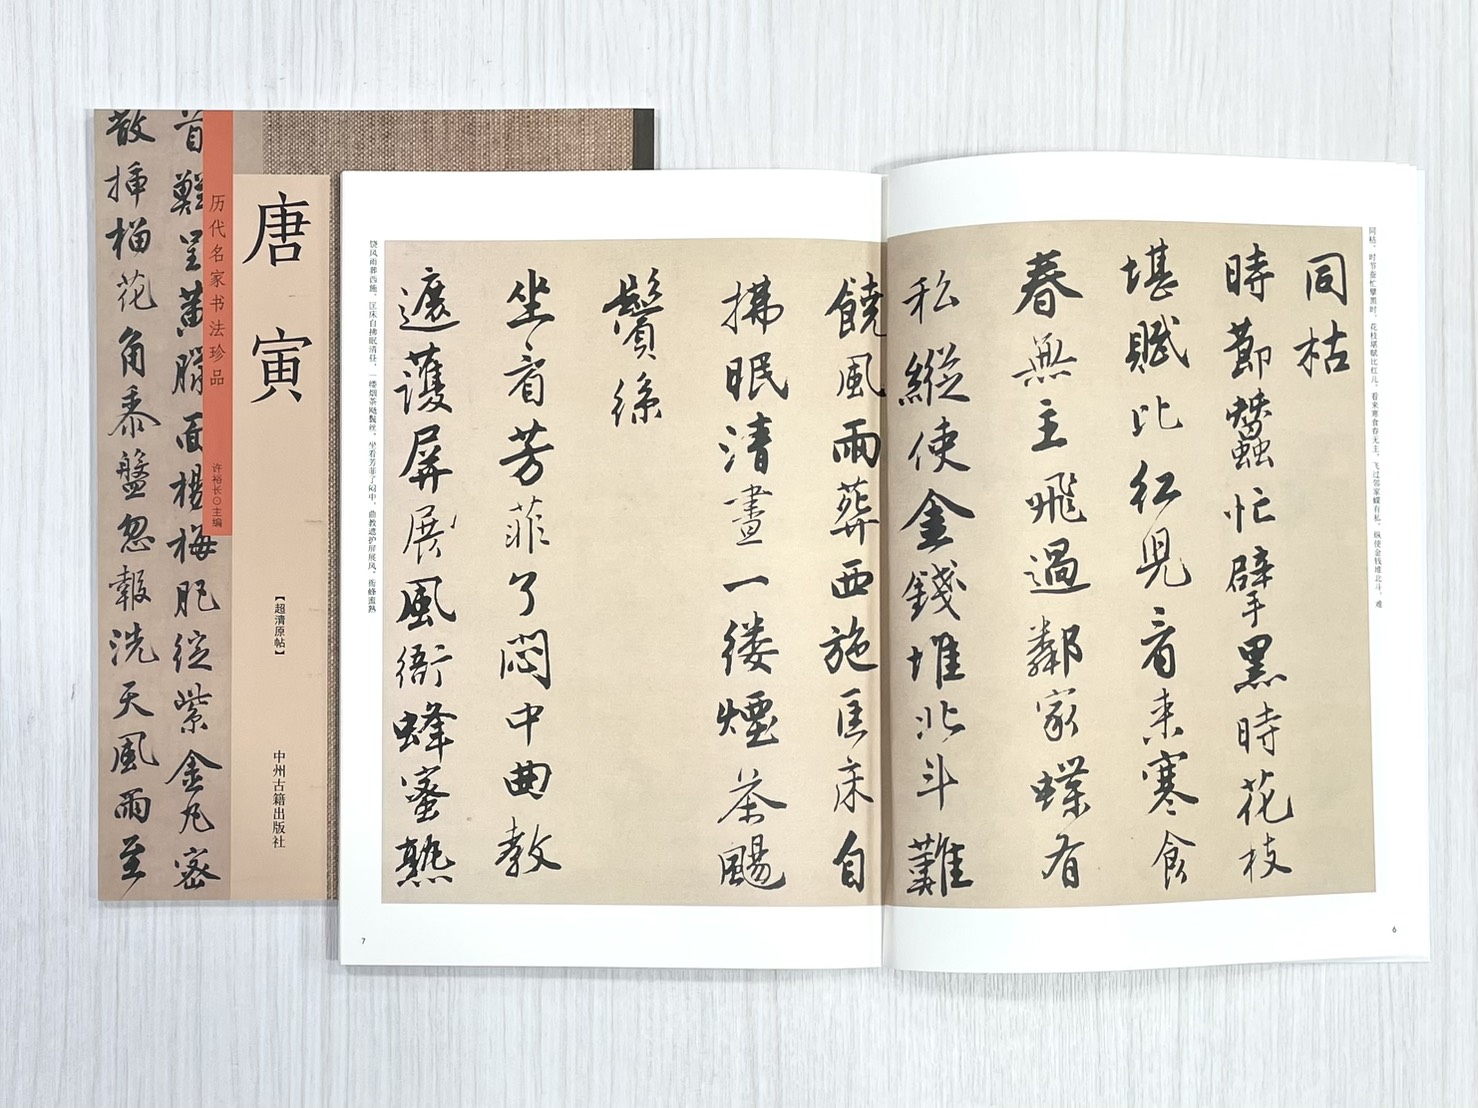 散插榴花角黍盤忽報洗天風雨至
历代名家书法珍品
许裕长⊙主编
唐寅
【超清原帖】
中州古籍出版社
同枯。时节蚕忙擘黑时，花枝堪赋比红儿。看来寒食春无主，飞过邻家蝶有私。纵使金钱堆北斗，难
同枯
時節蠶忙擘黑時花枝
堪賦比紅兒看来寒食
春無主飛過鄰家蝶有
私縱使金錢堆北斗難
6
饒風雨葬西施匡床自
拂眠清晝一缕煙茶颺
鬢絲
坐看芳菲了悶中曲教
遮護屏展風衙蜂蜜熟
饶风雨葬西施。匡床自拂眠清昼，一缕烟茶飏鬓丝。坐看芳菲了闷中，曲教遮护屏展风。衙蜂蜜熟
7